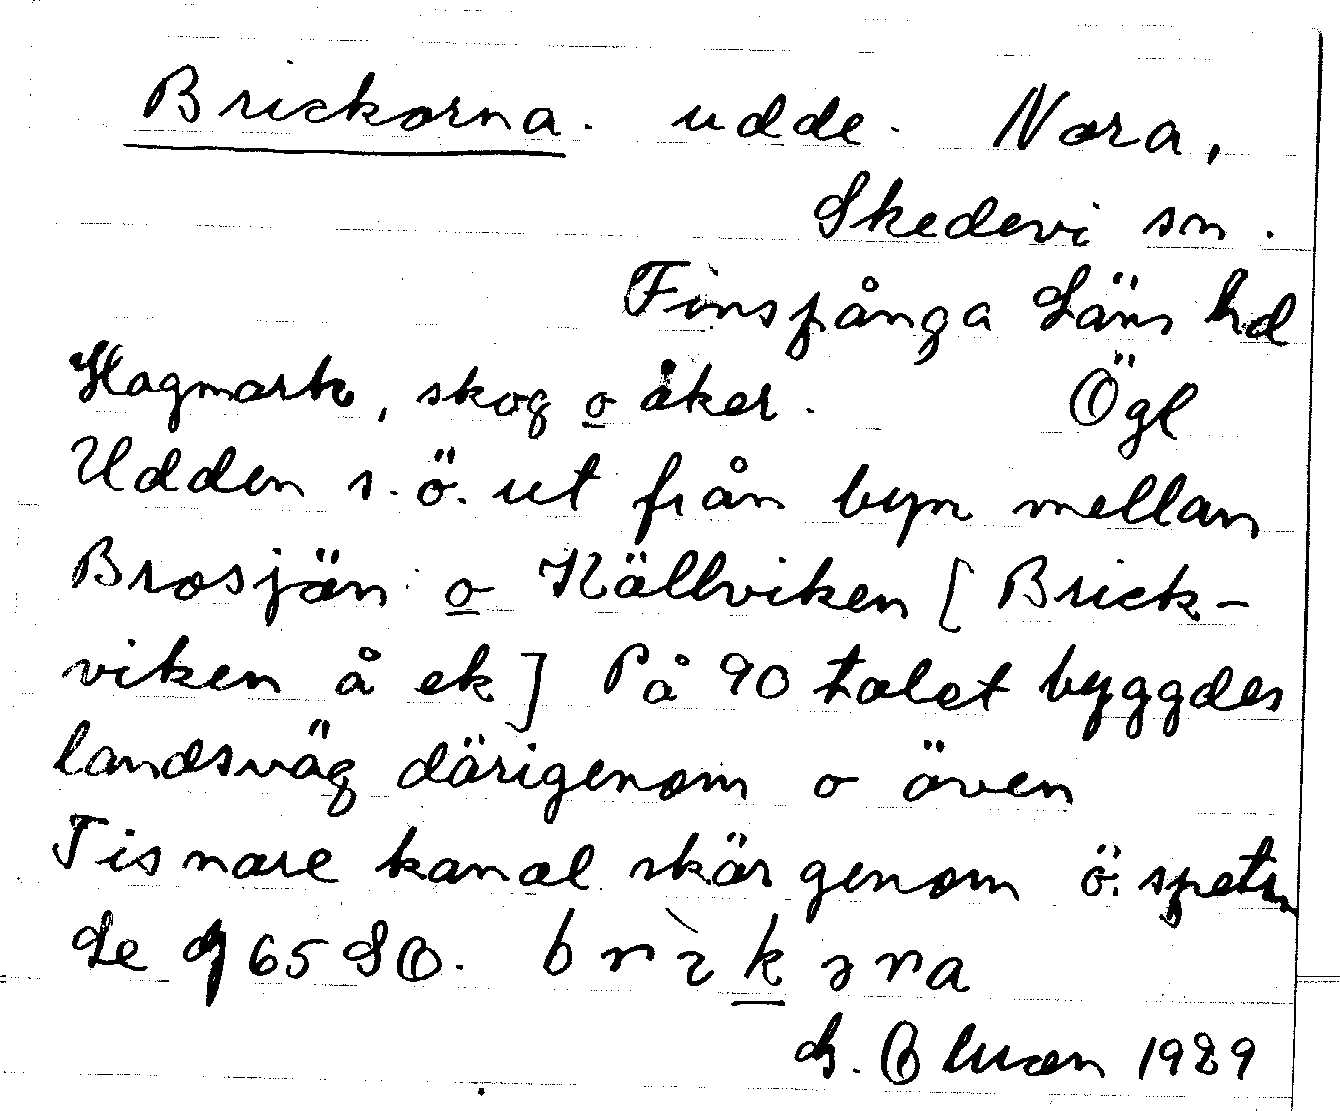 Brickorna. udde. Nora,
Skedevi sn.
Finspånga Läns hd
Hagmark, skog o åker. Ögl
Udden s.ö. ut från byn mellan
Brosjön o Källviken [Brick-
viken å ek] På 90 talet byggdes
landsväg därigenom o även
Tisnare kanal skär genom ö. spetsn
Le 965 SO. brikərna
1929